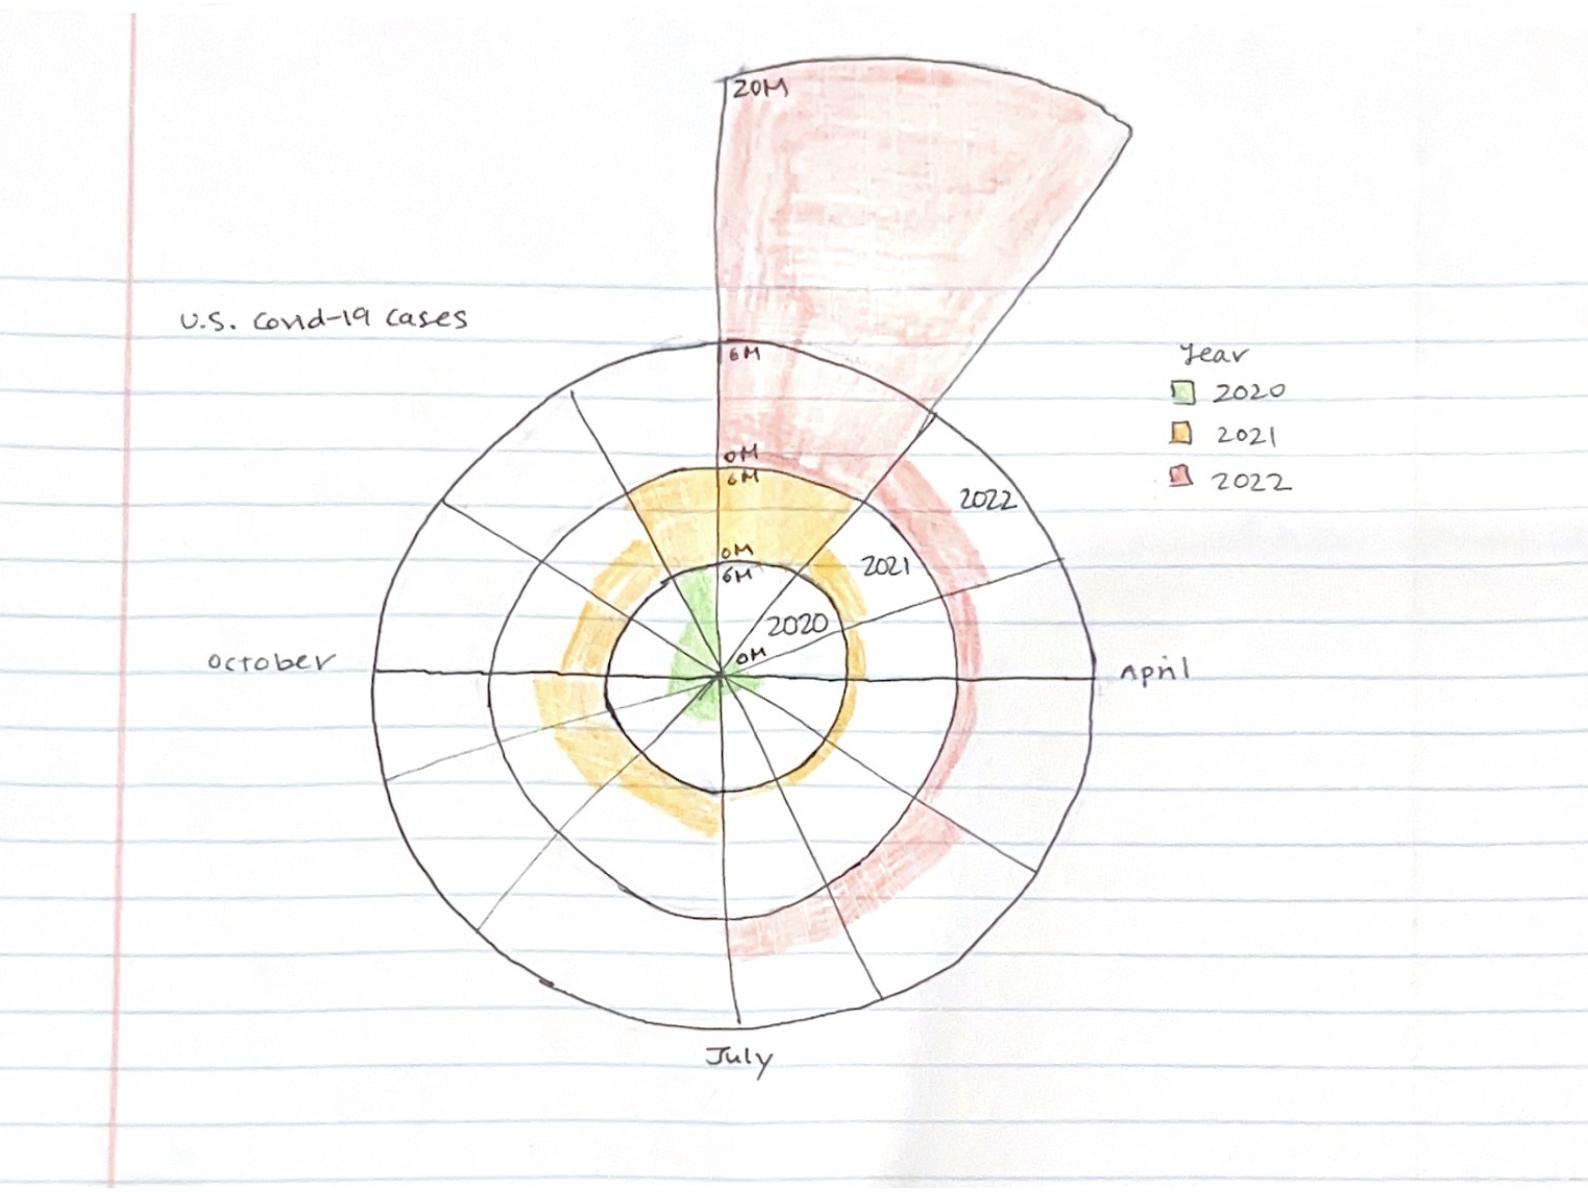 20M
U.S. Covid-19 Cases
6M
Year
2020
2021
2022
0M
6M
2022
0M
6M
2021
2020
0M
October
April
July